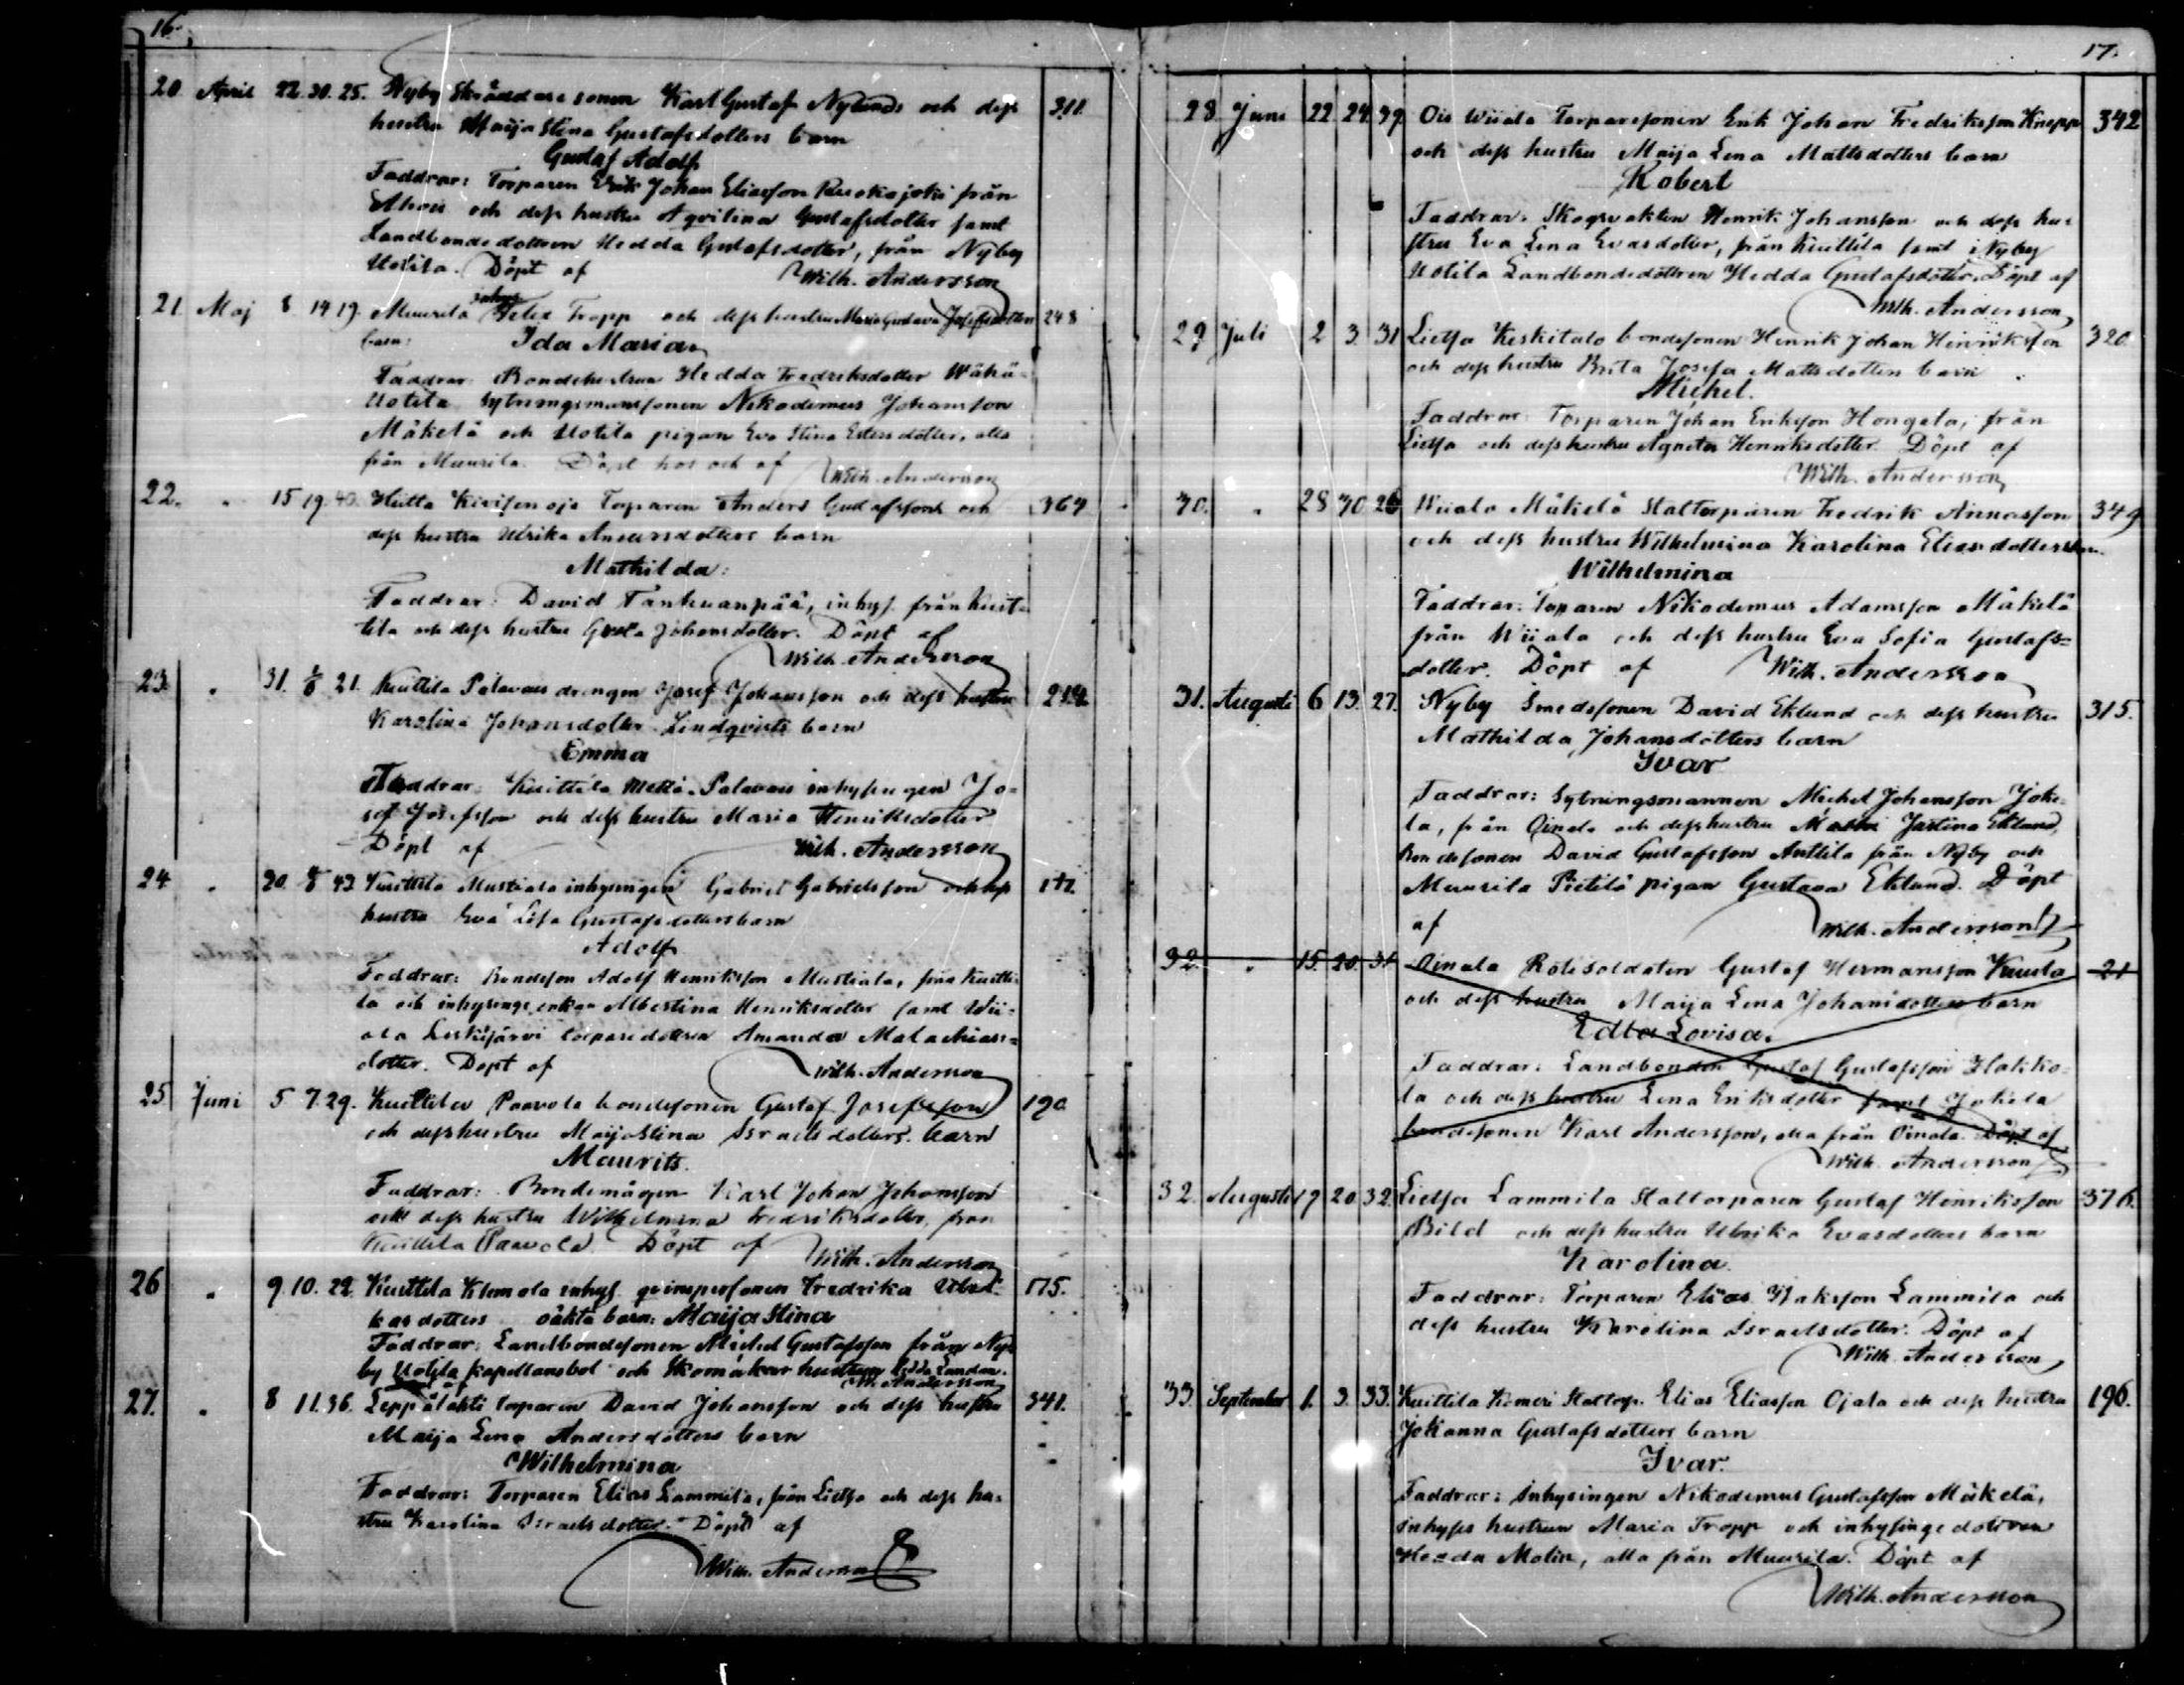 16.
20 April 22. 30. 25. Nyby Skräddare sonen Karl Gustaf Nylunds och dess 311.
hustru Maija Stina Gustafsdotters barn
Gustaf Adolf
Faddrar: Torparen Erik Johan Eliasson Ruokajoki från
och dess hustru Aqvilina Gustafsdotter samt
Landbondedottren Hedda Gustafsdotter, från Nyby
Uotila. Döpt af Wilh. Andersson
21. Maj 8. 14 19. Muurila inhys Felix Tropp och dess hustru Maria Gustava Josefsdotters 248
barn: Ida Maria
Faddrar: Bondehustrun Hedda Fredriksdotter Wähä-
Uotila, Sytningsmanssonen Nikodemus Johansson
Mäkelä och Uotila pigan Eva Stina dotter, alla
från Muurila. Döpt hos och af Wilh. Andersson
22. " 15 19. 40. Torparen Anders Gustafssons och 369
dess hustru Ulrika Andersdotters barn
Mathilda:
Faddrar: David Tankuanpää, inhys. från Kuit-
tila och dess hustru Greta Johansdotter. Döpt af
Wilh. Andersson
23. " 31. 21. Kuittila Palavais drengen Josef Johansson och dess hustru
Karolina Johansdotter Lindqvists barn
Emma
Faddrar: Kuittila Palavais inhysingen Jo-
sef Josefsson och dess hustru Maria Henriksdotter
Döpt af Wilh. Andersson
24 " 30. 43. Kuittila Mustiala inhysingen Gabriel Gabrielsson och dess
hustru Eva Lisa Gustafsdotters barn
Adolf
Faddrar: Bondeson Adolf Henriksson Mustiala, från Kuitti-
la och inhysings enkan Albertina Henriksdotter samt Wii-
ala torparedottren Amanda Malachias-
dotter. Döpt af Wilh. Andersson
25 Juni 5 7. 29. Kuittila Paavola bondesonen Gustaf Josefsson 190.
och dess hustru Maija Stina Israelsdotters barn
Maurits.
Faddrar: Bondemågen Karl Johan Johansson
och dess hustru Wilhelmina Fredriksdotter, från
Kuittila Paavola. Döpt af Wilh. Andersson
26 " 9 10. 22. Kuittila Klemola inhys. qvinspersonen Fredrika Ulri- 175.
kasdotters oäkta barn: Maija Stina
Faddrar: Landbondesonen Michel Gustafsson från Ny-
by Uotila kapellansbol och Skomakar hustrun Hedda
W. Andersson
27. " 8 11. 36. Leppälahti torparen David Johansson och dess hustru 341.
Maija Lena Andersdotters barn
Wilhelmina
Faddrar: Torparen Elias Lammila, från Lietsa och dess hu-
stru Karolina Israelsdotter. Döpt af
Wilh. Andersson
17.
28. Juni 22 24. 39. Ois Wiiala Torparesonen Erik Johan Fredriksson Knapp 342
och dess hustru Maija Lena Mattsdotters barn
Robert
Faddrar: Skogvakten Henrik Johansson och dess hu-
stru Eva Lena Evasdotter, från Kuittila samt i Nyby
Uotila Landbondedottren Hedda Gustafsdotter. Döpt af
Wilh. Andersson
29 Juli 2 3. 31 Lietsa Keskitalo bondesonen Henrik Johan Henriksson 320
och dess hustru Brita Josefa Mattsdotters barn
Michel.
Faddrar: Torparen Johan Eriksson Hongela, från
Lietsa och dess hustru Agneta Henriksdotter. Döpt af
Wilh. Andersson
30. " 28 30 26 Wiiala Mäkelä Staltorparen Fredrik Annasson 349
och dess hustru Wilhelmina Karolina Eliasdotters barn
Wilhelmina
Faddrar: Torparen Nikodemus Adamsson Mäkelä
från Wiiala och dess hustru Eva Sofia Gustafs-
dotter. Döpt af Wilh. Andersson
31. Augusti 6 13. 27. Nyby Smedssonen David Eklund och dess hustru 315.
Mathilda Johansdotters barn
Ivar
Faddrar: Sytningsmannen Michel Johansson Joke-
la, från Oinala och dess hustru Justina Eklund,
Bondesonen David Gustafsson Anttila från Nyby och
Muurila Pietilä pigan Gustava Eklund. Döpt
af Wilh. Andersson
32. " 15. 20. 31 Oinala Rotesoldaten Gustaf Hermansson Kuula 21
och dess hustru Maija Lena Johansdotters barn
Edla Lovisa.
Faddrar: Landbonden Gustaf Gustafsson Hakko-
la och dess hustru Lena Eriksdotter samt Jokela
bondesonen Karl Andersson, alla från Oinala. Döpt af
Wilh. Andersson
32. Augusti 17 20. 32. Lietsa Lammila Staltorparen Gustaf Henriksson 376.
Bild och dess hustru Ulrika Evasdotters barn
Karolina.
Faddrar: Torparen Elias Isaksson Lammila och
dess hustru Karolina Israelsdotter. Döpt af
Wilh. Andersson
33. September 1. 3. 33. Kuittila Komeri Staltorp. Elias Eliasson Ojala och dess hustru 196.
Johanna Gustafsdotters barn
Ivar.
Faddrar: Inhysingen Nikodemus Gustafsson Mäkelä,
inhyses hustrun Maria Tropp och inhysinge dottren
Hedda Molin, alla från Muurila. Döpt af
Wilh. Andersson